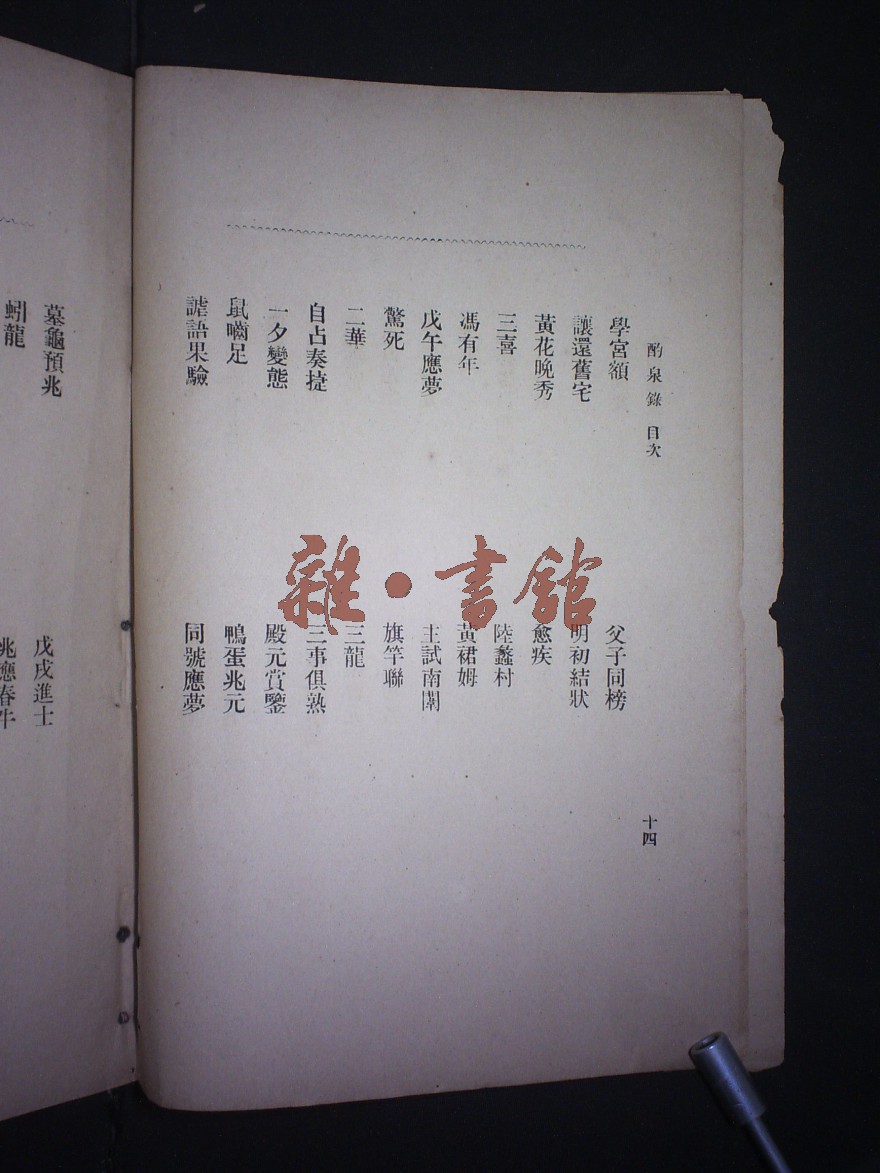 酌泉錄 目次
十四
學宮額
父子同榜
讓還舊宅
明初結狀
黃花晚秀
愈疾
三喜
陸蠡村
馮有年
黃裙姆
戊午應夢
主試南闈
驚死
旗竿聯
二華
三龍
自占奏捷
三事俱熟
一夕變態
殿元賞鑒
鼠嚙足
鴨蛋兆元
謔語果驗
同號應夢
墓龜預兆
戊戌進士
蚓龍
兆應春牛
雜·書館